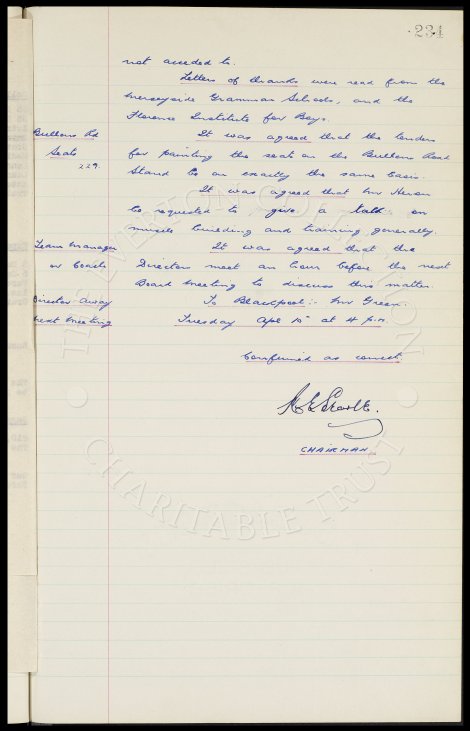 231
not acceded to.
Letters of thanks were read from the
Merseyside Grammar Schools, and the
Florence Institute for Boys.
Bullens Rd It was agreed that the tenders
Seats for painting the seats on the Bullens Road
229. Stand be on exactly the same basis.
It was agreed that Mr Heron
be requested to give a talk on
muscle building and training generally.
Team Manager It was agreed that the
or Coach Directors meet an hour before the next
Board Meeting to discuss this matter.
Director Away To Blackpool:- Mr Green.
next Meeting Tuesday Apl 15th at 4 p.m.
Confirmed as correct.
CHAIRMAN
THE EVERTON COLLECTION
CHARITABLE TRUST